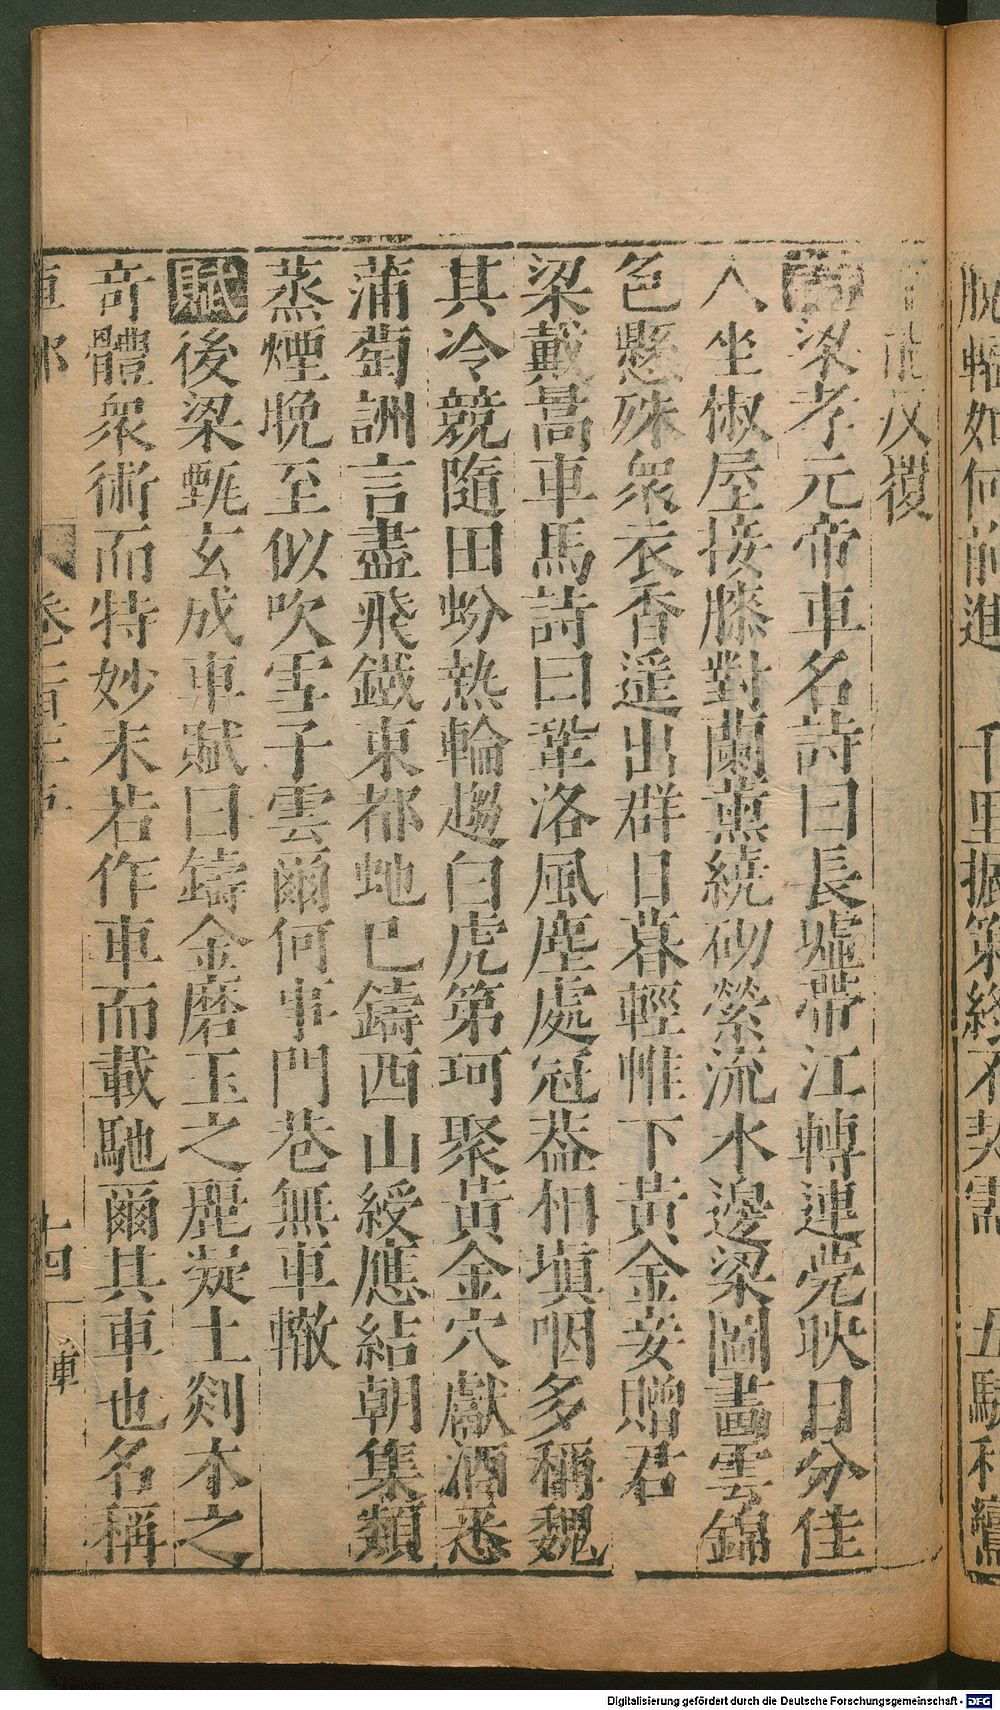 脱輻如何前進　千里振策終不契需　五馭和鸞
反覆
詩梁孝元帝車名詩曰長墟帶江轉連甍映日分佳
人坐俶屋接膝對蘭薰繞砌縈流水邊梁圖畫雲錦
色懸殊衆衣香遥出群日暮輕帷下黃金妾贈君
梁戴暠車馬詩曰鞏洛風塵處冠葢相塡咽多稱魏
其冷競隨田蚡熱輪趨白虎第珂聚黃金穴獻酒悉
蒲萄詶言盡飛鐵東都虵巳鑄西山綬應結朝集類
蒸煙晩至似吹雪子雲爾何事門巷無車轍
賦後梁甄玄成車賦曰鑄金磨玉之麗凝土剡木之
奇體衆術而特妙未若作車而載馳爾其車也名稱
車部　卷一百三十　十四　車
Digitalisierung gefördert durch die Deutsche Forschungsgemeinschaft - DFG